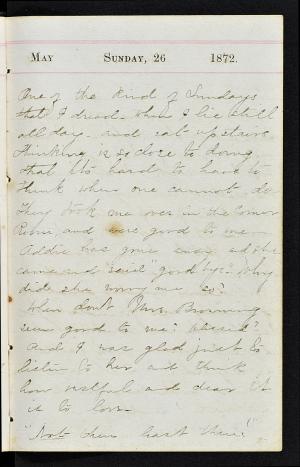 May Sunday, 26 1872.
One of the kind of Sundays
that I dread - when I lie still
all day - and eat upstairs.
Thinking is so close to doing
that it's hard to have to
think when one cannot do
They took me over in the
Room, and were good to me -
Addie has gone and she
came and "said" good bye - Why
did she worry me so?
When don't Mrs. Browning
seem good to me?
And I was glad just to
listen to her and think
how restful and dear it
is to love -
"